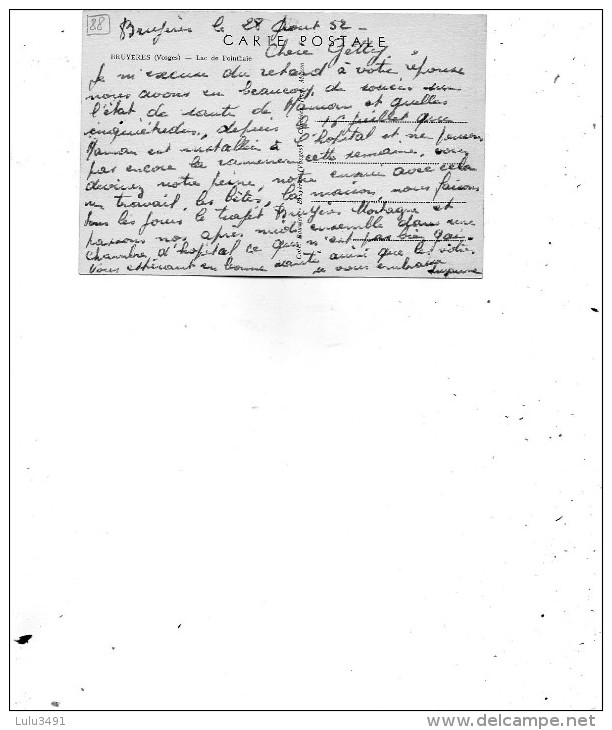 88
Bruyères le 28 Aout 52 -
CARTE POSTALE
BRUYÈRES (Vosges) — Lac de Pointhaie
Chère Getty
Je m'excuse du retard à votre réponse
nous avons eu beaucoup de soucis sur
l'état de santé de Maman et quelles
inquiétudes, depuis 18 juillet que
Maman est installée à l'hôpital et ne pouvons
pas encore la ramener cette semaine, vous
devinez notre peine, notre ennui avec cela
un travail, les bêtes, la maison nous faisons
tous les jours le trajet Bruyères Mortagne et
passons nos après midi ensemble dans une
chambre d'hôpital ce qui n'est pas bien gai.
Vous espérant en bonne santé ainsi que les vôtres
je vous embrasse
Suzanne
Lulu3491
delcampe.net